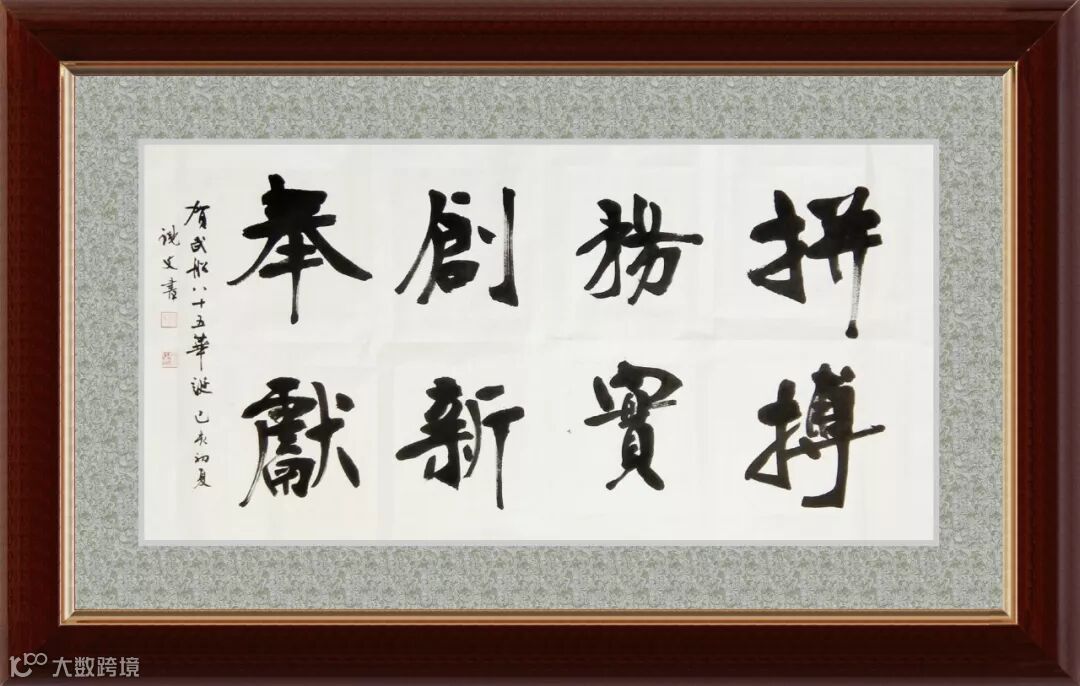 拼搏
務實
創新
奉獻
賀武船八十五華誕 己亥初夏
書
大数跨境